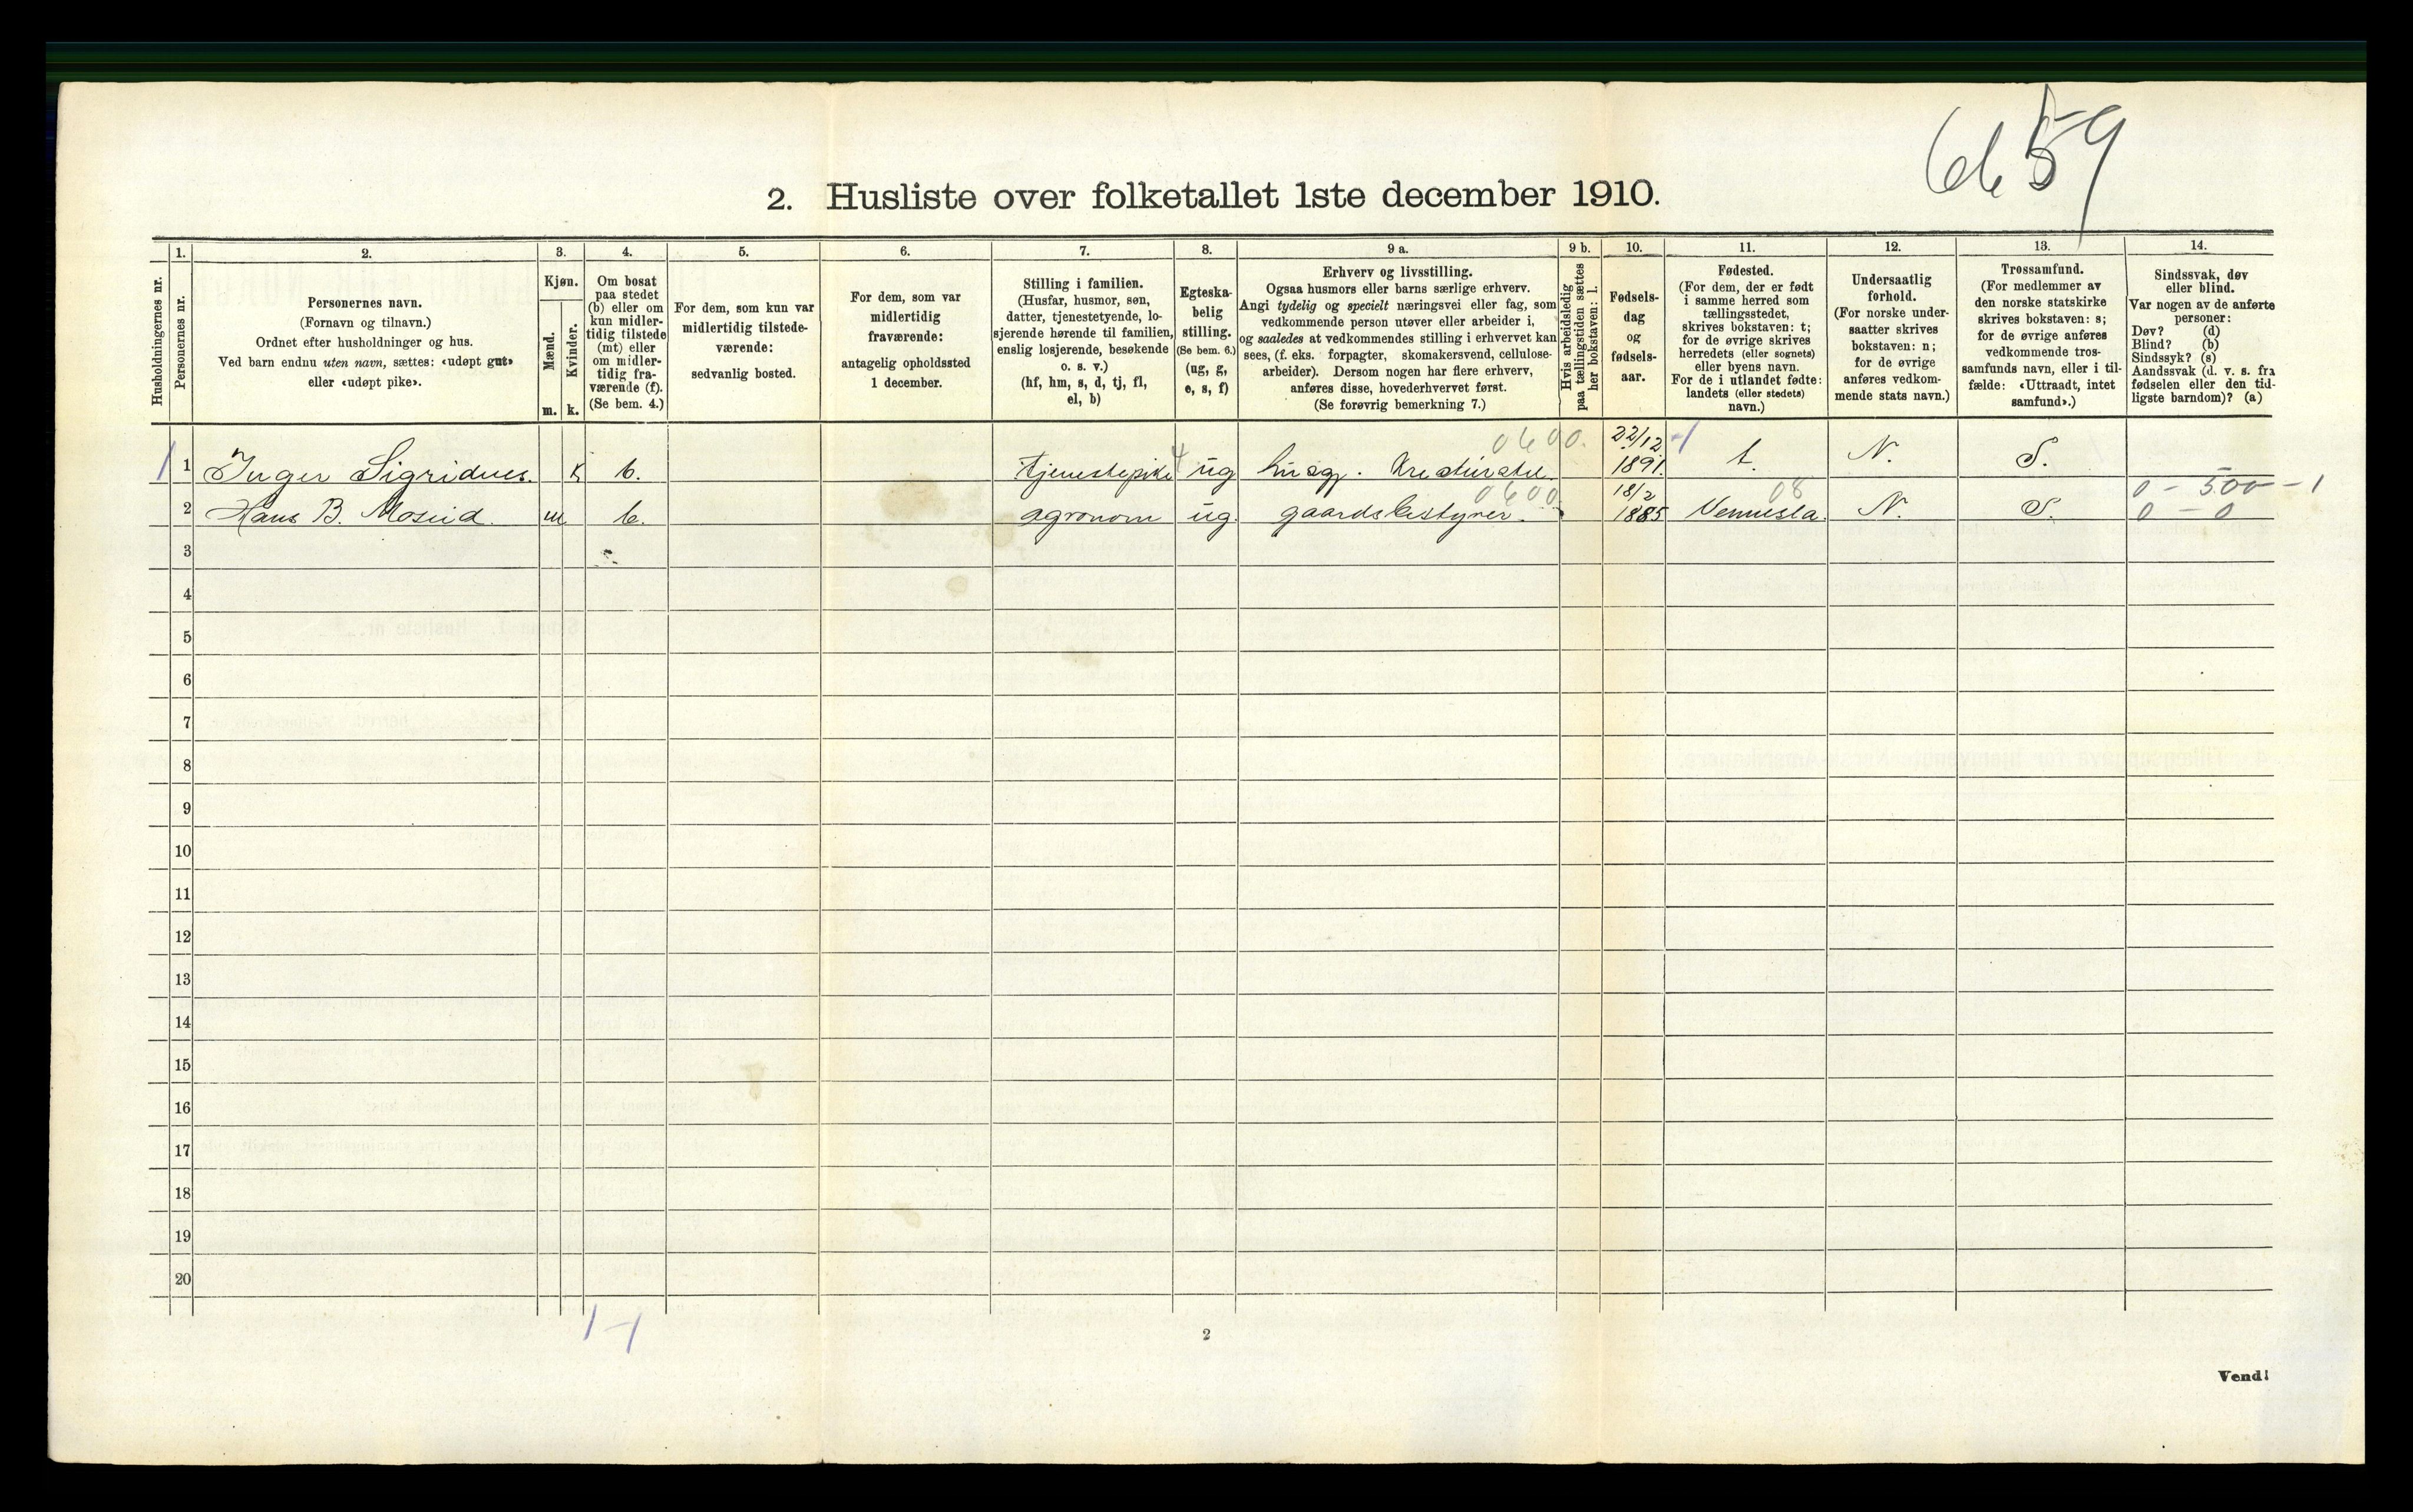 59
2. Husliste over folketallet 1ste december 1910.
Husholdningernes nr.
1.
Personernes nr.
2.
Personernes navn.
(Fornavn og tilnavn.)
Ordnet efter husholdninger og hus.
Ved barn endnu uten navn, sættes: «udøpt gut»
eller «udøpt pike».
3.
Kjøn.
Mænd.
Kvinder.
m. k.
4.
Om bosat
paa stedet
(b) eller om
kun midler-
tidig tilstede
(mt) eller
om midler-
tidig fra-
værende (f).
(Se bem. 4.)
5.
For dem, som kun var
midlertidig tilstede-
værende:
sedvanlig bosted.
6.
For dem, som var
midlertidig
fraværende:
antagelig opholdssted
1 december.
7.
Stilling i familien.
(Husfar, husmor, søn,
datter, tjenestetyende, lo-
sjerende hørende til familien,
enslig losjerende, besøkende
o. s. v.)
(hf, hm, s, d, tj, fl,
el, b)
8.
Egteska-
belig
stilling.
(Se bem. 6.)
(ug, g,
e, s, f)
9 a.
Erhverv og livsstilling.
Ogsaa husmors eller barns særlige erhverv.
Angi tydelig og specielt næringsvei eller fag, som
vedkommende person utøver eller arbeider i,
og saaledes at vedkommendes stilling i erhvervet kan
sees, (f. eks. forpagter, skomakersvend, cellulose-
arbeider). Dersom nogen har flere erhverv,
anføres disse, hovederhvervet først.
(Se forøvrig bemerkning 7.)
9 b.
Hvis arbeidsledig
paa tællingstiden sættes
her bokstaven: l.
10.
Fødsels-
dag
og
fødsels-
aar.
11.
Fødested.
(For dem, der er født
i samme herred som
tællingsstedet,
skrives bokstaven: t;
for de øvrige skrives
herredets (eller sognets)
eller byens navn.
For de i utlandet fødte:
landets (eller stedets)
navn.)
12.
Undersaatlig
forhold.
(For norske under-
saatter skrives
bokstaven: n;
for de øvrige
anføres vedkom-
mende stats navn.)
13.
Trossamfund.
(For medlemmer av
den norske statskirke
skrives bokstaven: s;
for de øvrige anføres
vedkommende tros-
samfunds navn, eller i til-
fælde: «Uttraadt, intet
samfund».)
14.
Sindssvak, døv
eller blind.
Var nogen av de anførte
personer:
Døv? (d)
Blind? (b)
Sindssyk? (s)
Aandssvak (d. v. s. fra
fødselen eller den tid-
ligste barndom)? (a)
1 1 Inger Sigridnes. k b. tjenestepike 4 ug husgj. Kreaturstel. 0600. 22/12 1891. t. N. S.
0 - 500 - 1
2 Hans B. Moseid m b. agronom ug. gaardsbestyrer. 0600. 18/2 1885 Vennesla. 08 N. S. 0 - 0
3
4
5
6
7
8
9
10
11
12
13
14
15
16
17
18
19
20
1-1
2
Vend!